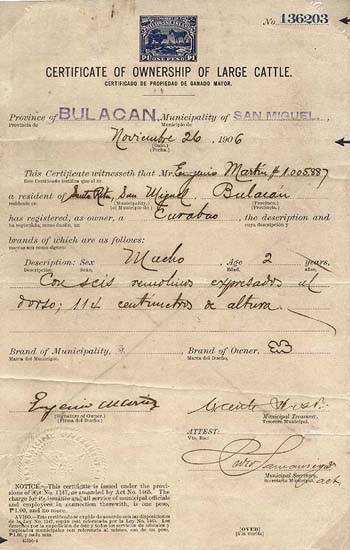 PHILIPPINE ISLANDS
ONE PESO
No. 136203
CERTIFICATE OF OWNERSHIP OF LARGE CATTLE.
CERTIFICADO DE PROPIEDAD DE GANADO MAYOR.
Province of BULACAN, Municipality of SAN MIGUEL
Provincia de Municipio de
Noviembre 26, 1906
(Date.)
(Fecha.)
This Certificate witnesseth that Mr. Eugenio Martin # 1.005.887
Este Certificado testifica que el Sr.
a resident of Santa Rita, San Miguel Bulacán
(Municipality.) (Province.)
(Municipio.) (Provincia.)
has registered, as owner, a Carabao, the description and
ha registrado, como dueño, un cuya descripción y
brands of which are as follows:
marcas son como siguen:
Description: Sex Macho, Age 2 years.
Descripción: Sexo Edad, años.
Con seis remolinos expresados al
dorso; 114 centimetros de altura.
Brand of Municipality, Brand of Owner,
Marca del Municipio. Marca del Dueño.
Eugenio Martin
(Signature of Owner.)
(Firma del Dueño.)
Municipal Treasurer.
Tesorero Municipal.
ATTEST:
Vto. Bno.:
Pedro
Municipal Secretary.
Secretario Municipal.
act.
NOTICE.—This certificate is issued under the provisions
of Act No. 1147, as amended by Act No. 1465. The
charge for its issuance and all service of municipal officials
and employees in connection therewith, is one peso,
₱1.00, and no more.
AVISO.—Este certificado se expide de acuerdo con las disposiciones
de la Ley No. 1147, según está reformada por la Ley No. 1465. Los
derechos por la expedición de éste y todos los servicios de oficiales
y empleados municipales con referencia al mismo, son de un peso,
₱1.00, y no más.
(OVER)
(á la vuelta)